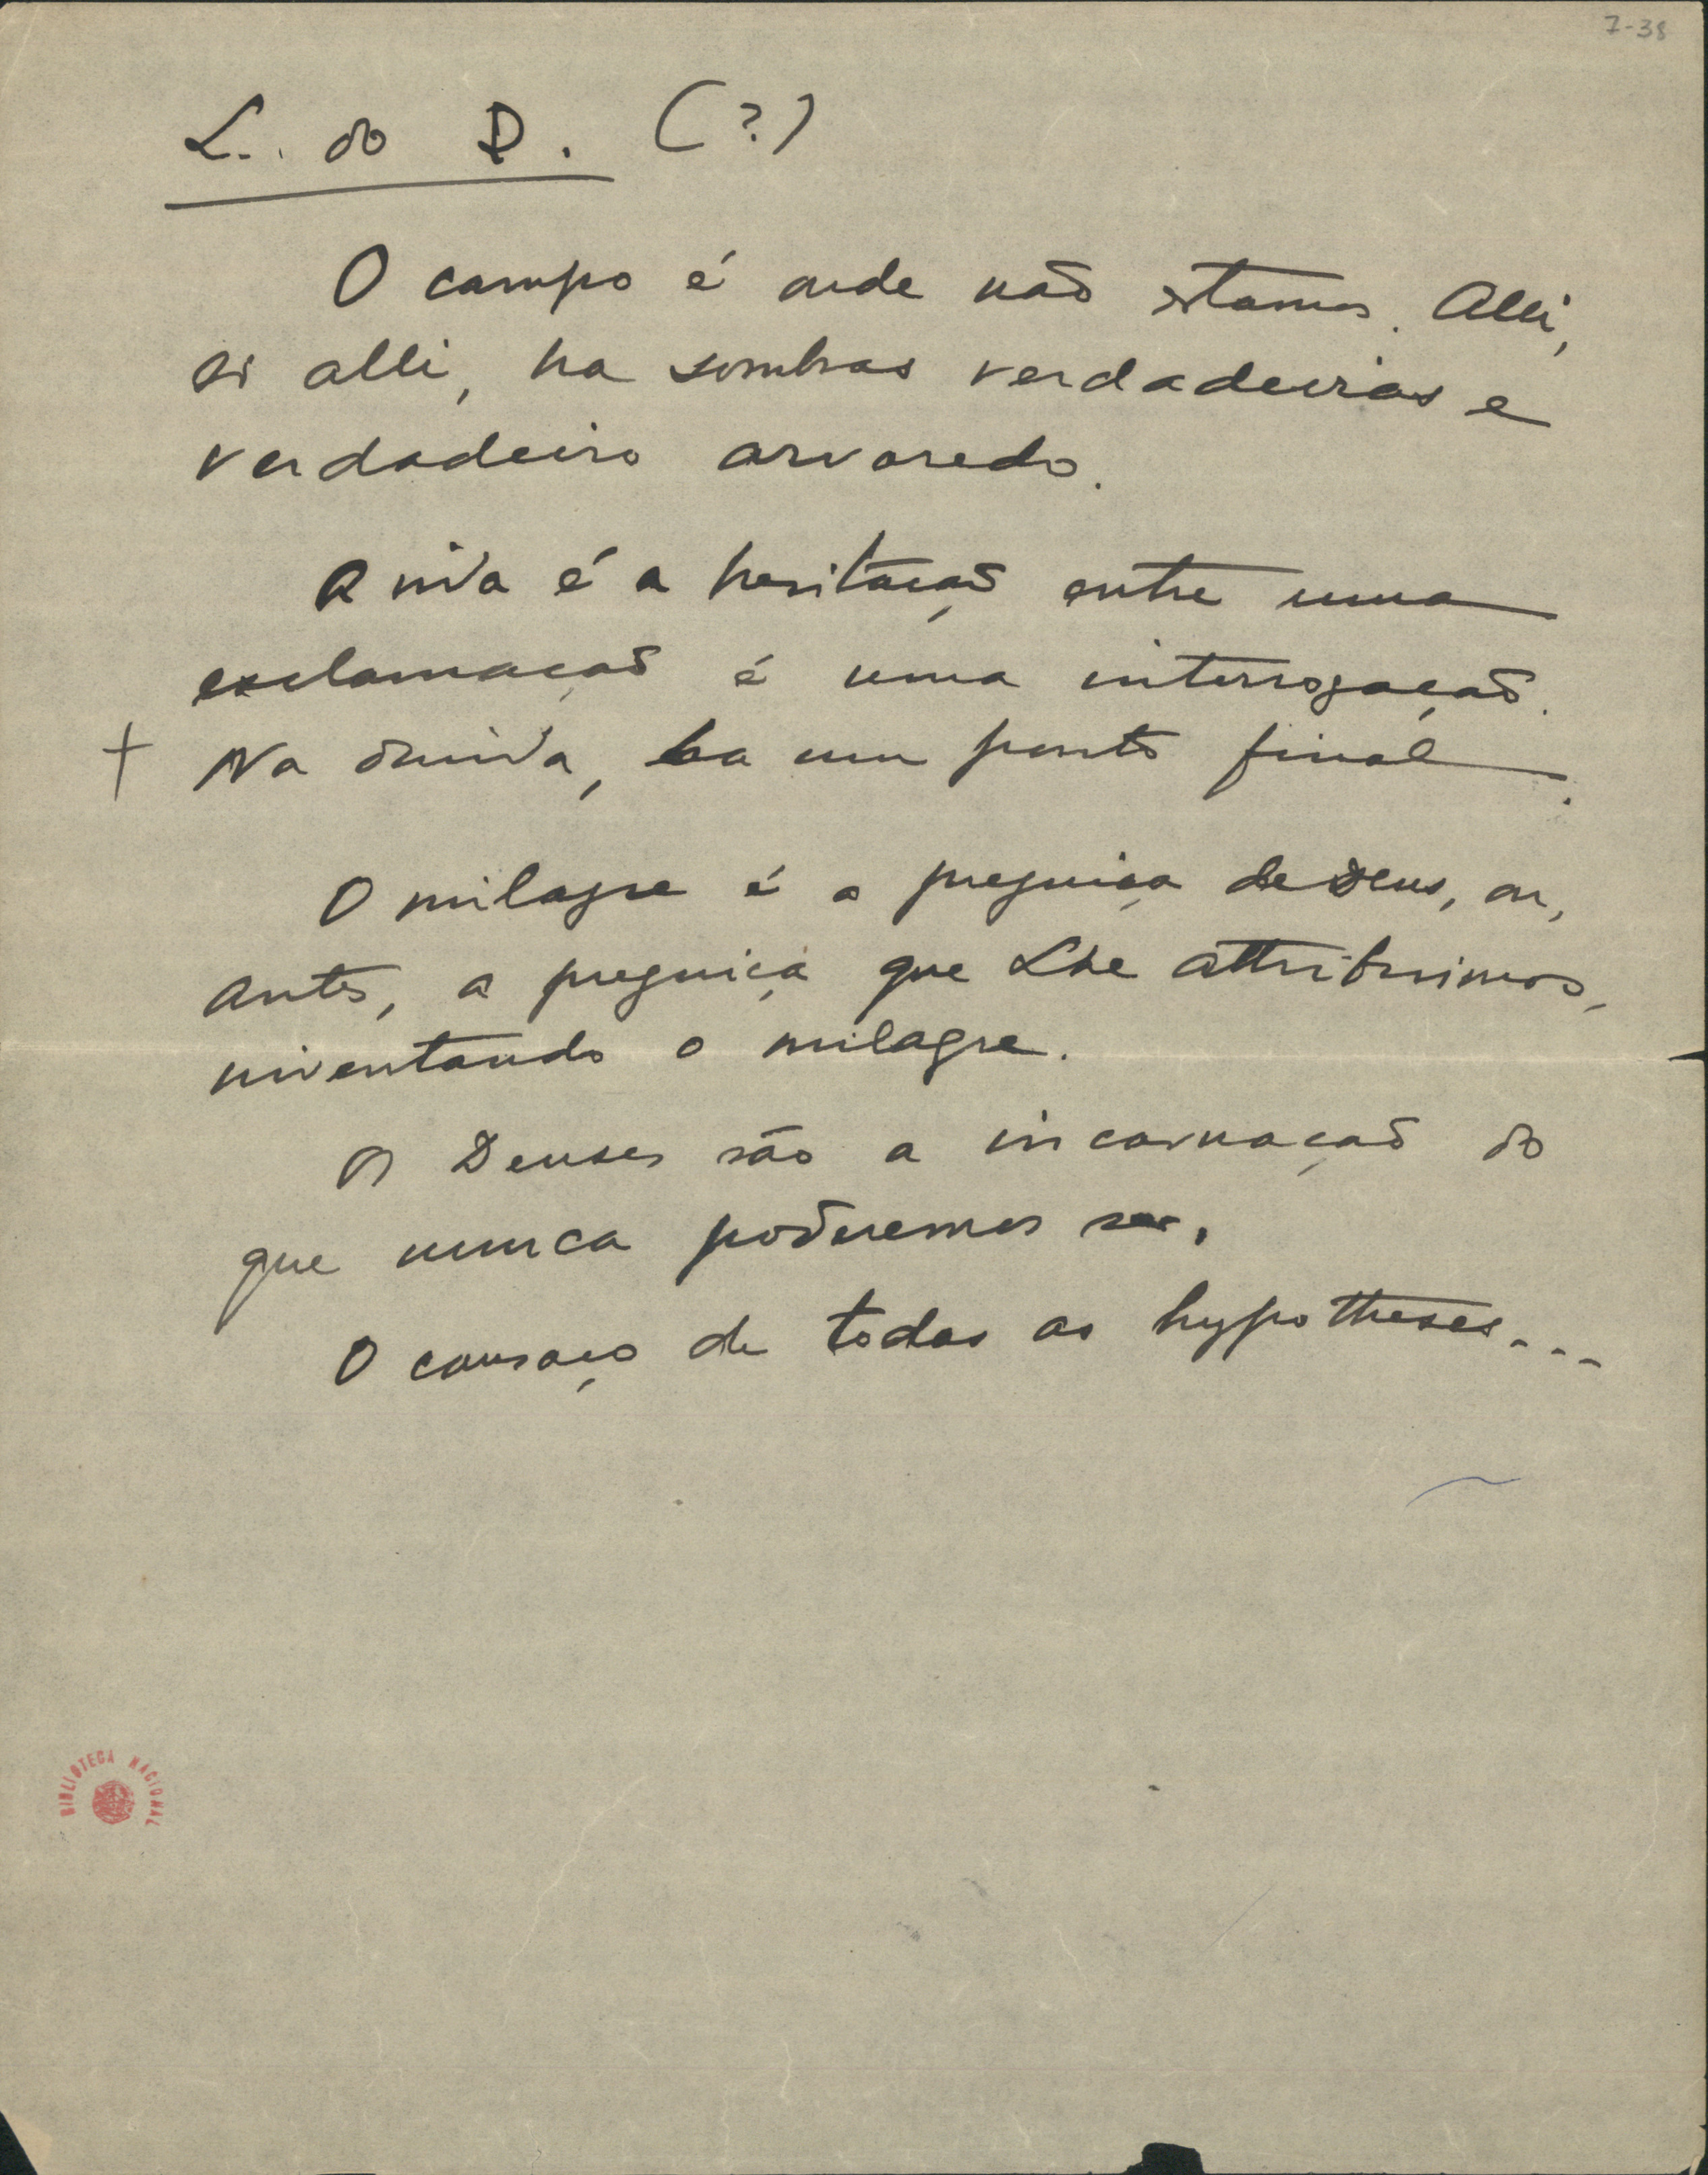 7-38
L. do D. (?)
O campo é onde não estamos. Alli,
só alli, ha sombras verdadeiras e
verdadeiro arvoredo.
A vida é a hesitação entre uma
exclamação e uma interrogação.
† Na duvida, ha um ponto final.
O milagre é a preguiça de Deus, ou,
antes, a preguiça que Lhe attribuimos,
inventando o milagre.
Os Deuses são a incarnação do
que nunca poderemos ser.
O cansaço de todas as hypotheses...
BIBLIOTECA NACIONAL